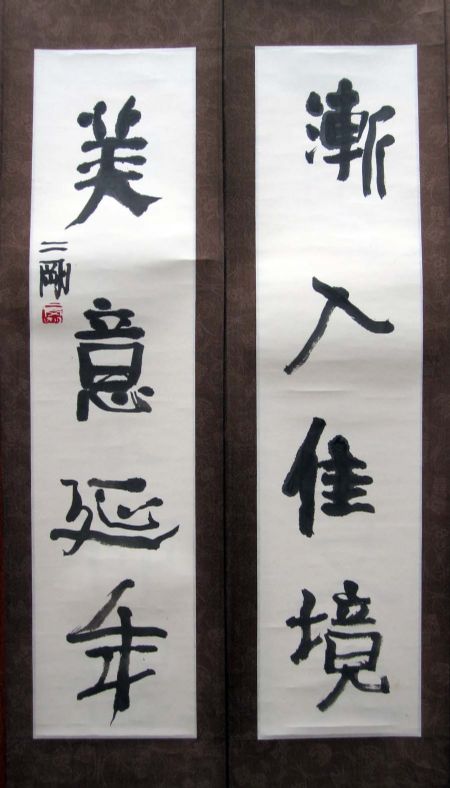 漸入佳境
美意延年
二剛